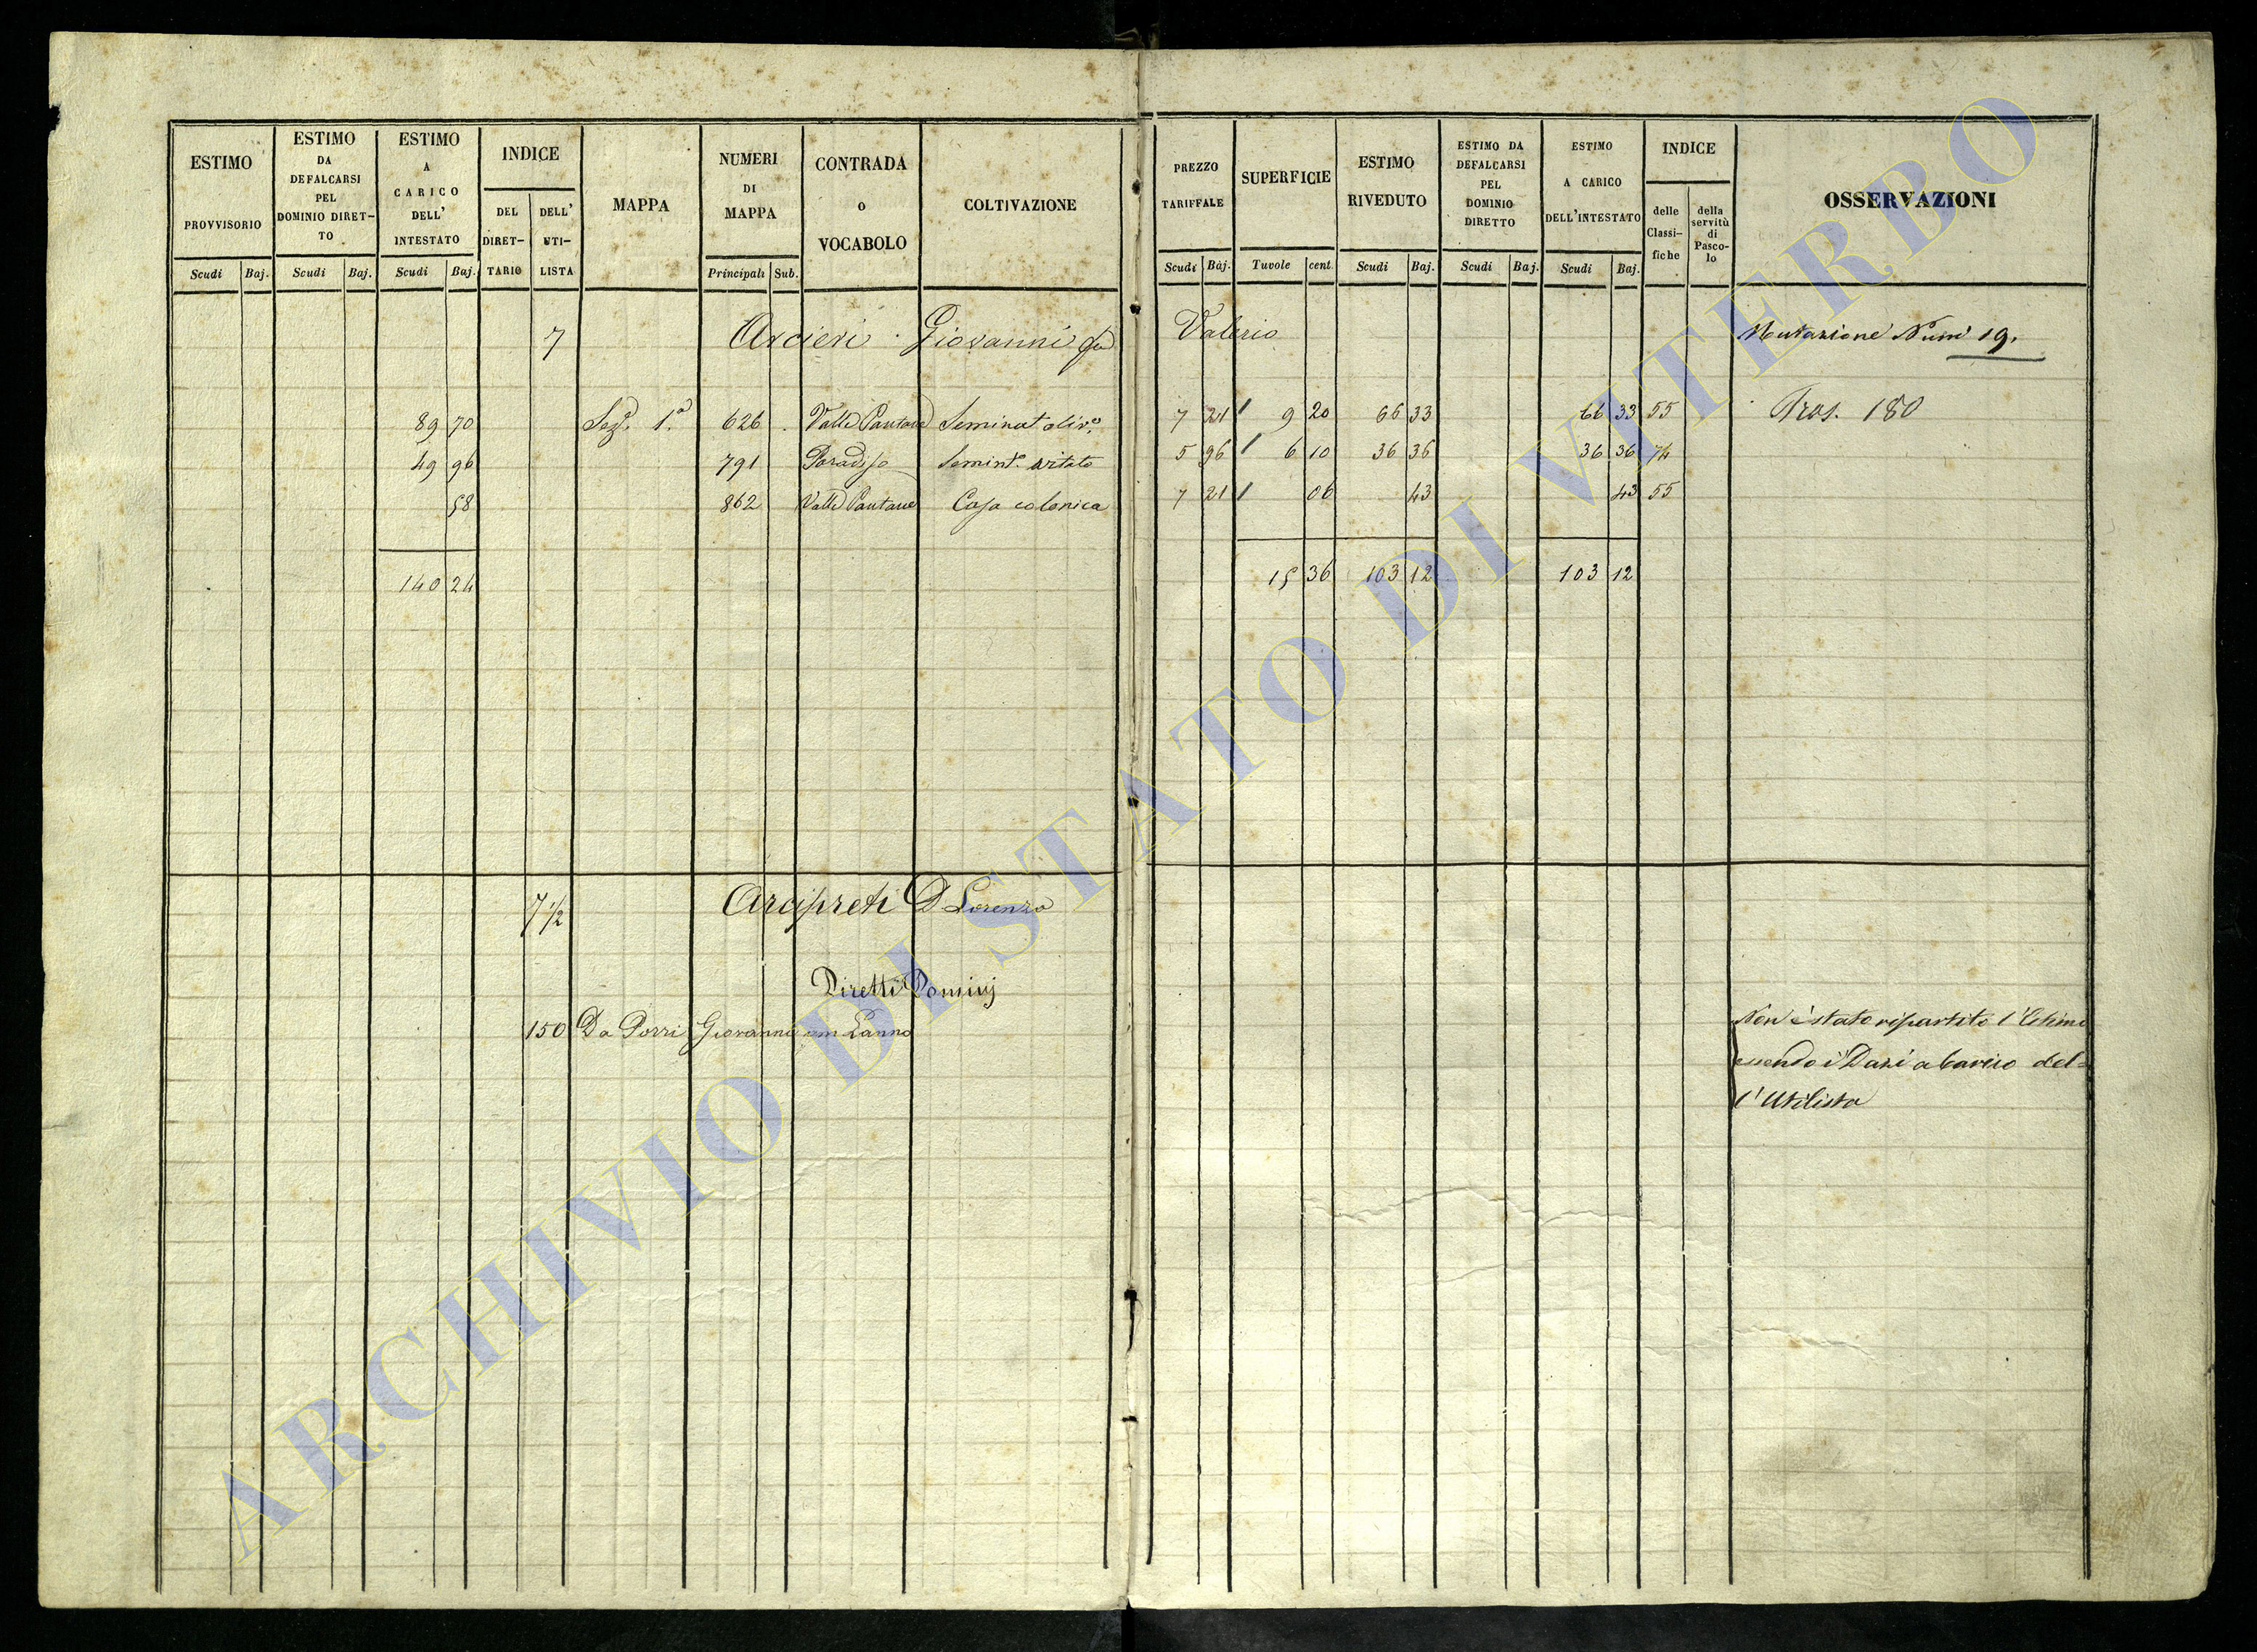 ESTIMO PROVVISORIO
Scudi Baj.
ESTIMO DA DEFALCARSI PEL DOMINIO DIRET-TO
Scudi Baj.
ESTIMO A CARICO DELL' INTESTATO
Scudi Baj.
INDICE
DEL DIRET-TARIO
DELL' UTI-LISTA
MAPPA
NUMERI DI MAPPA
Principali Sub.
CONTRADA o VOCABOLO
COLTIVAZIONE
PREZZO TARIFFALE
Scudi Baj.
SUPERFICIE
Tavole cent.
ESTIMO RIVEDUTO
Scudi Baj.
ESTIMO DA DEFALCARSI PEL DOMINIO DIRETTO
Scudi Baj.
ESTIMO A CARICO DELL'INTESTATO
Scudi Baj.
INDICE
delle Classi-fiche
della servitù di Pasco-lo
OSSERVAZIONI
7 Arcieri Giovanni fu Valerio Mutazione Num 19.
89 70 Sez. 1a. 626 Valle Pantane Seminat oliv.o 7 21 9 20 66 33 66 33 55 Tras. 180
49 96 791 Paradiso Semint. vitato 5 96 6 10 36 36 36 36 74
58 862 Valle Pantane Casa colonica 7 21 06 43 43 55
140 24 15 36 103 12 103 12
7 1/2 Arcipreti D Lorenzo
Diretti Dominj
150 Da Porri Giovanni Non è stato ripartito l'Estimo
essendo i Dazi a Carico del=
l'Utilista
ARCHIVIO DI STATO DI VITERBO